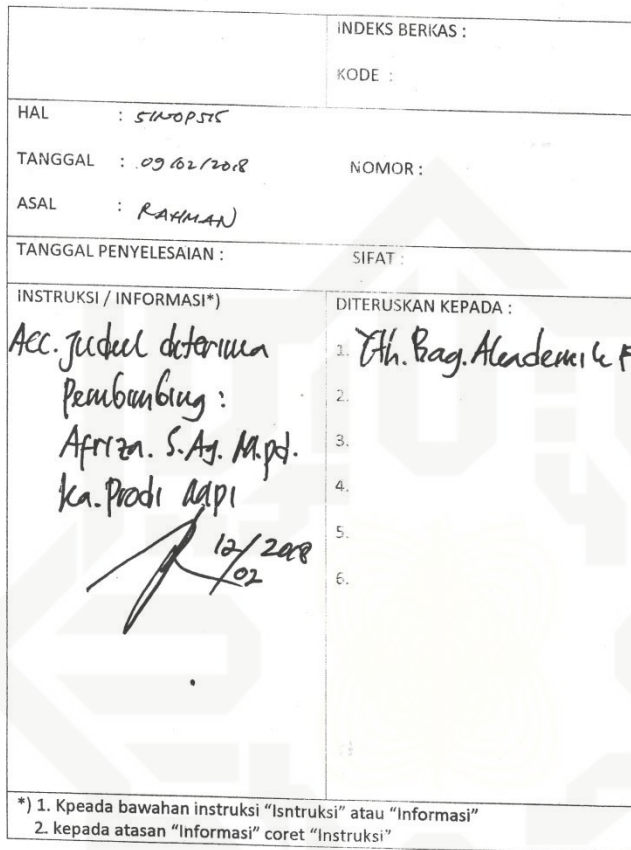 INDEKS BERKAS :
KODE :
HAL : SINOPSIS
TANGGAL : 09/02/2018
NOMOR :
ASAL : RAHMAN
TANGGAL PENYELESAIAN :
SIFAT :
INSTRUKSI / INFORMASI*)
DITERUSKAN KEPADA :
Acc. Judul diterima
Pembimbing :
Afriza. S.Ag. M.pd.
Ka. Prodi MPI
12/02 2018
1. Yth. Bag. Akademik F
2.
3.
4.
5.
6.
*) 1. Kpeada bawahan instruksi “Isntruksi” atau “Informasi”
2. kepada atasan “Informasi” coret “Instruksi”